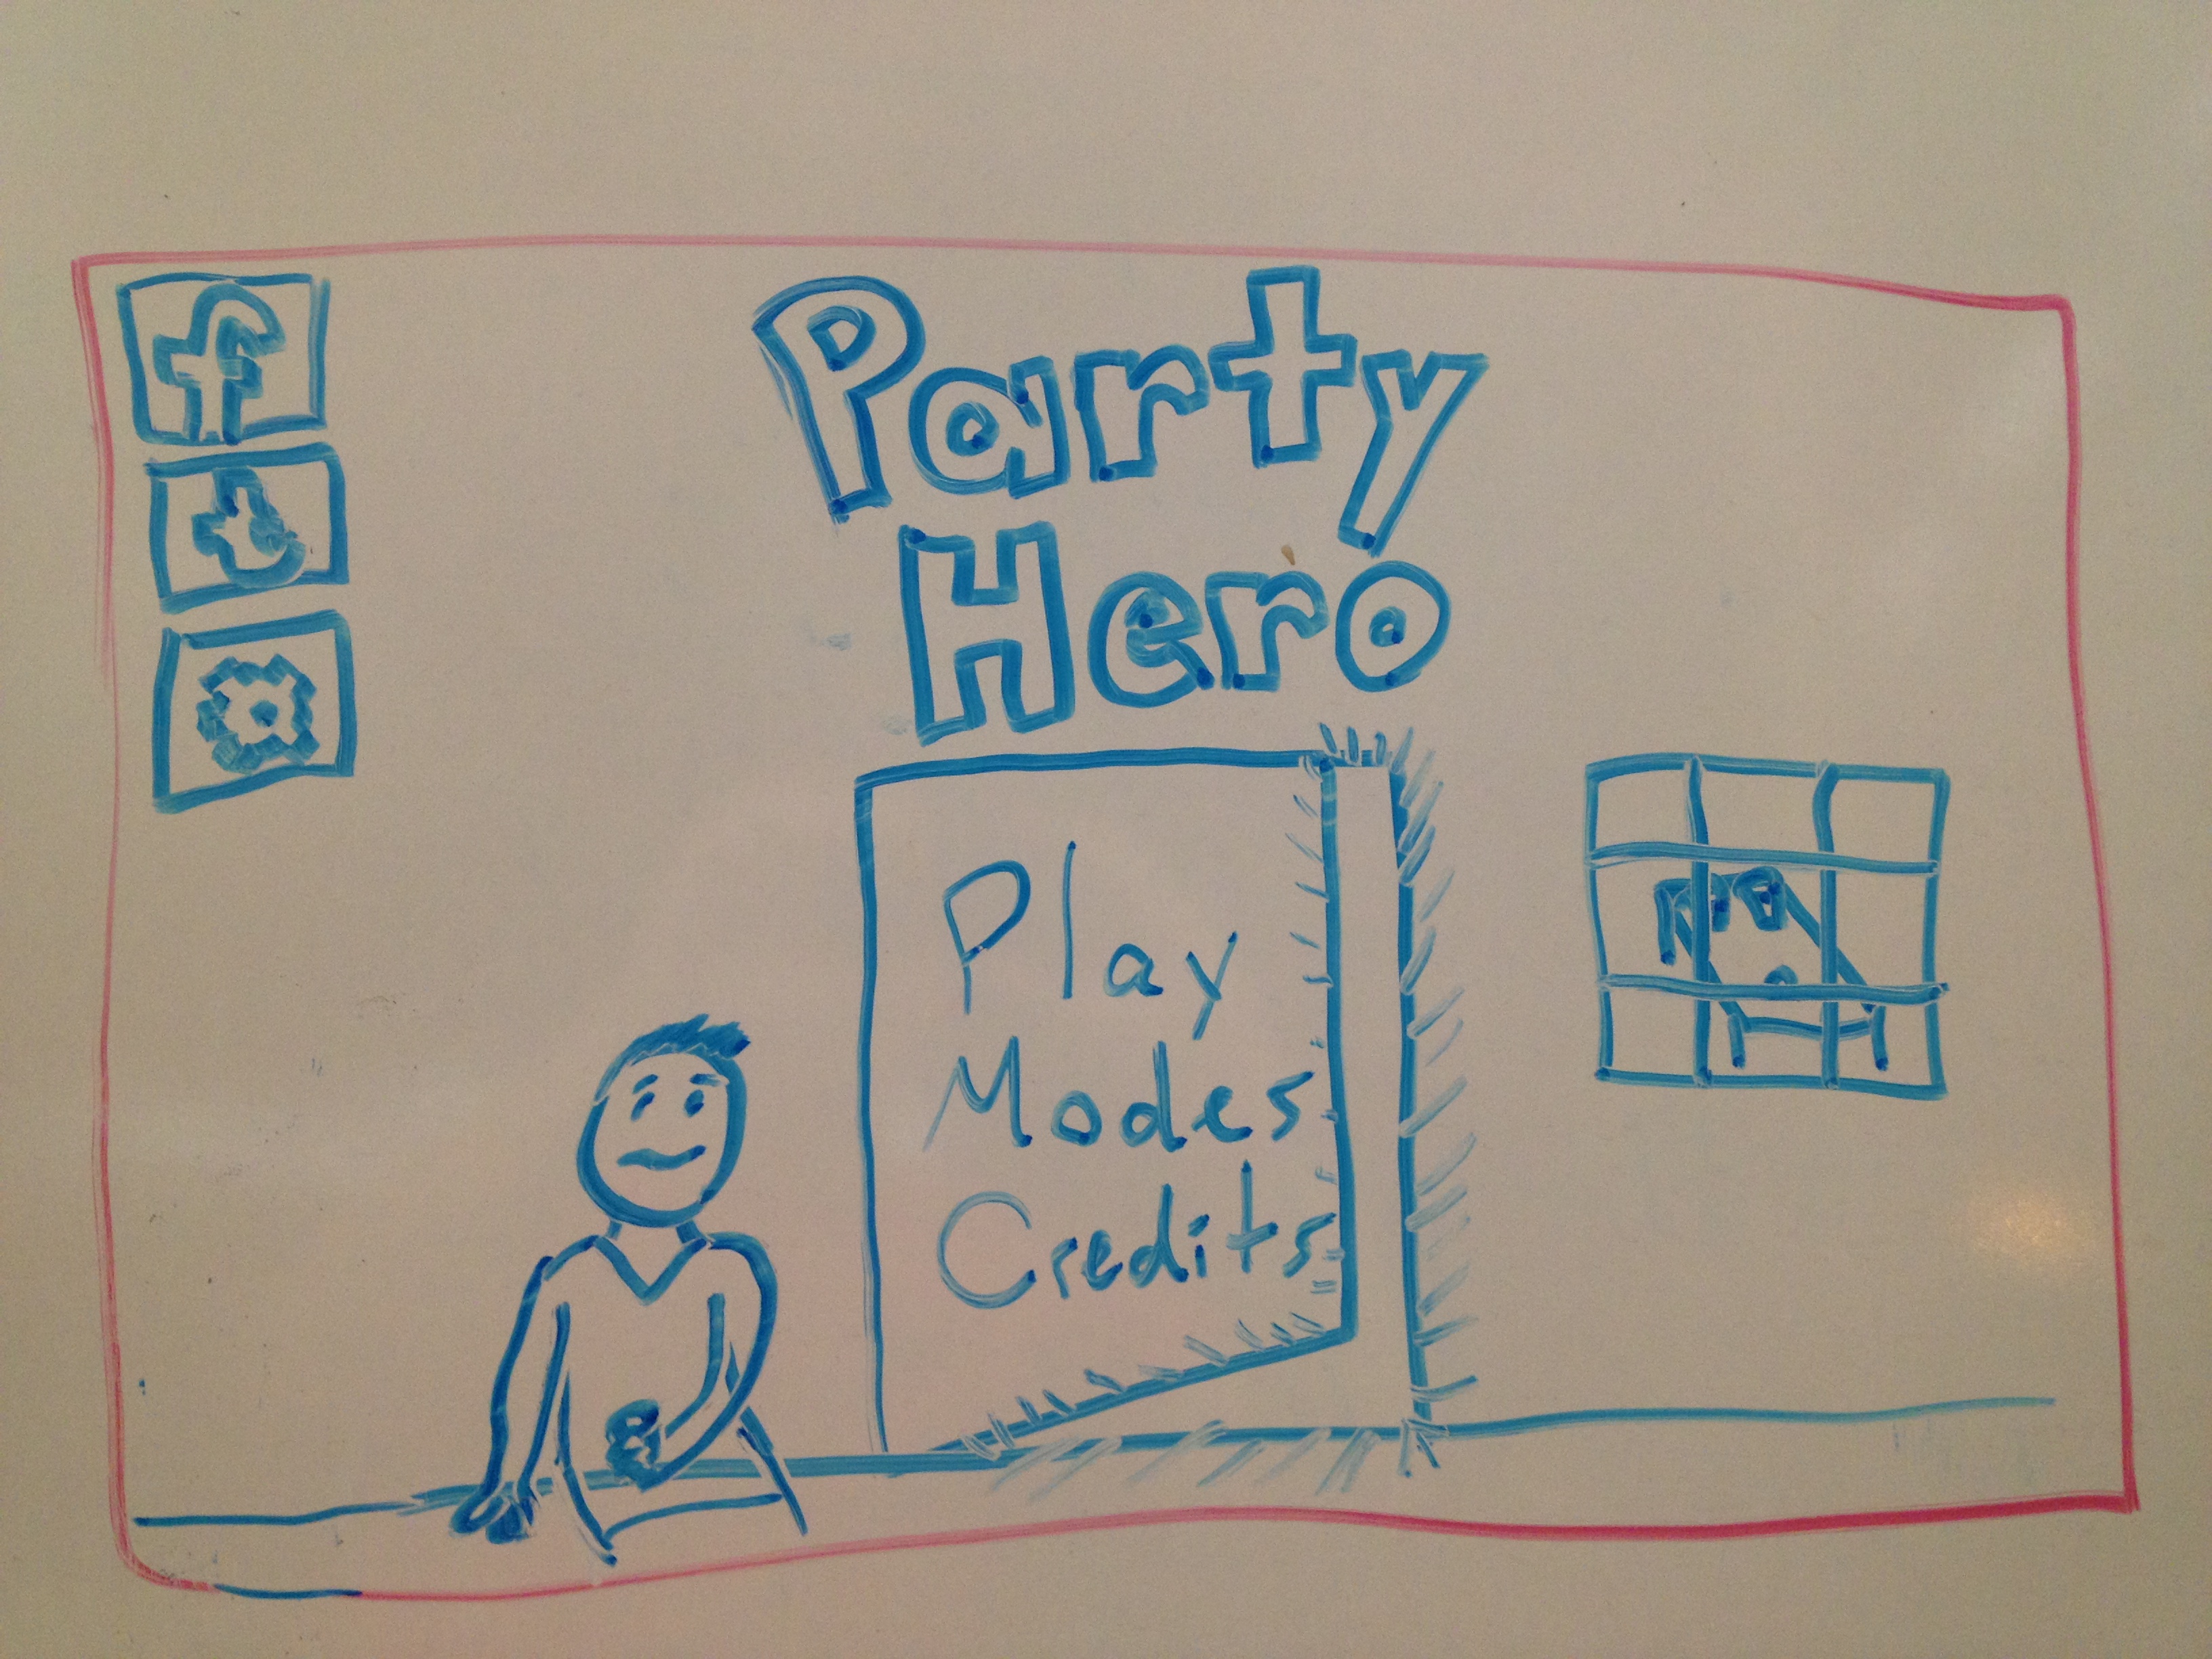 f
t
Party
Hero
Play
Modes
Credits